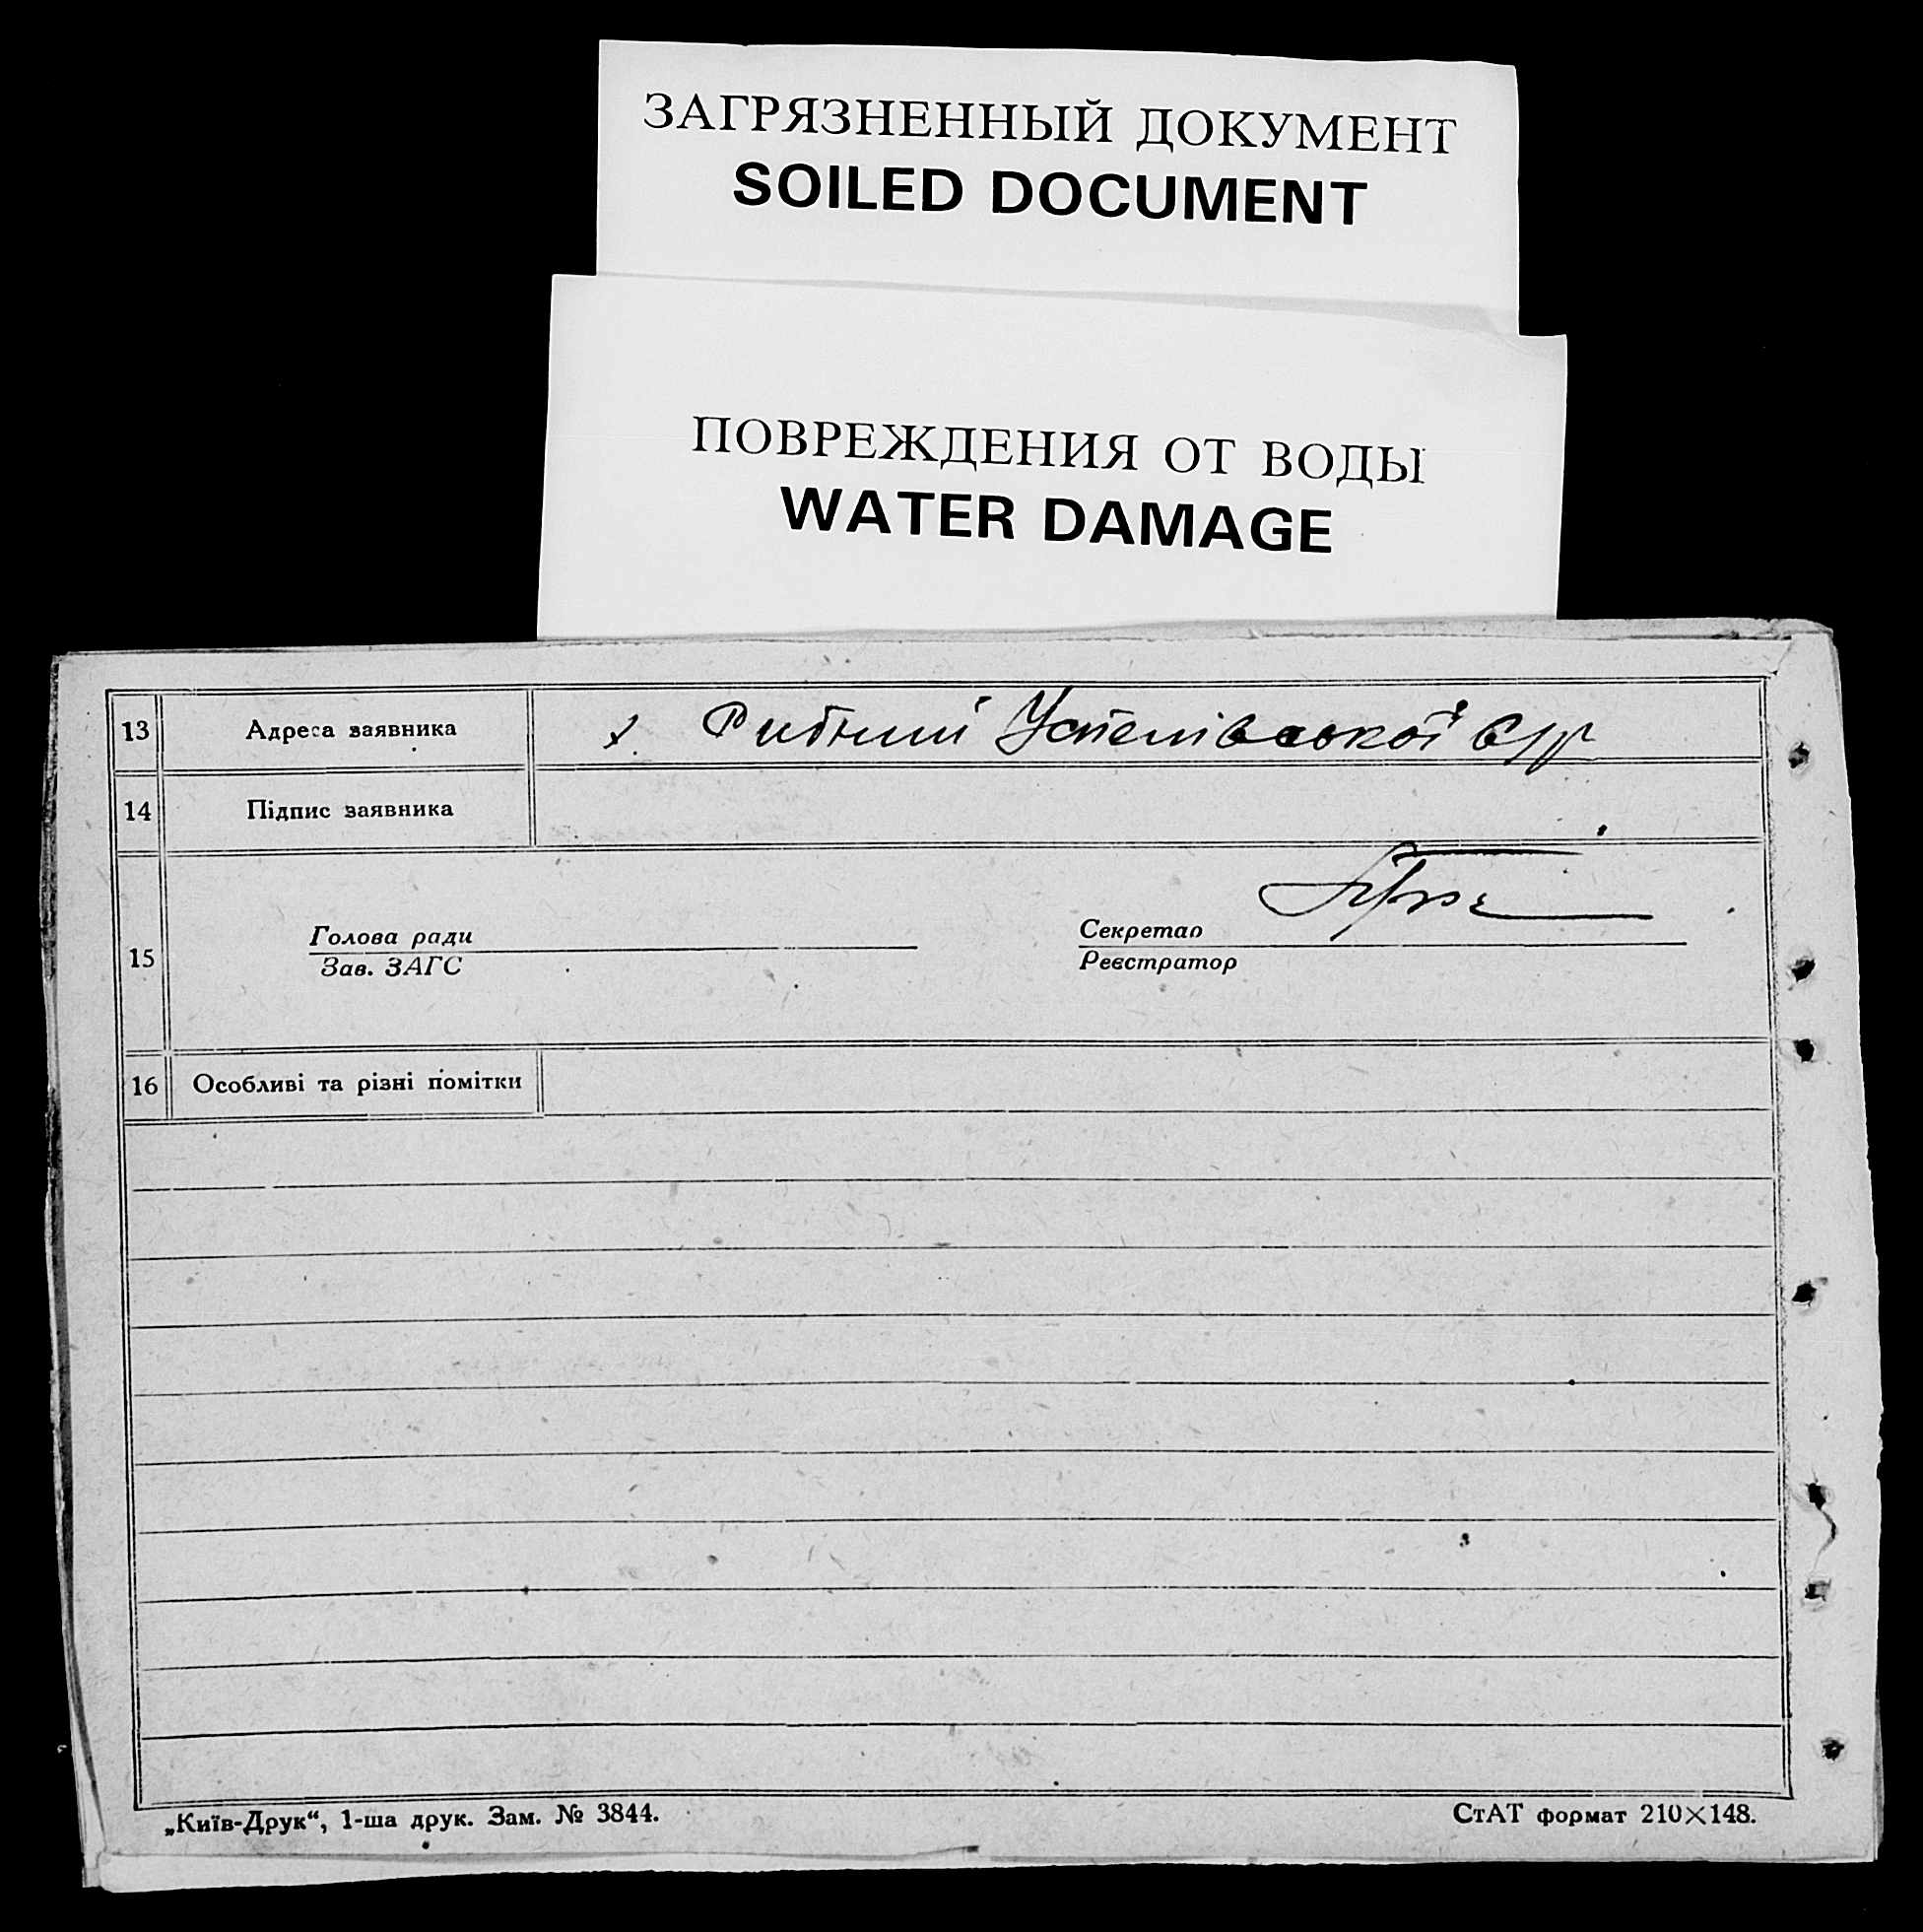 ЗАГРЯЗНЕННЫЙ ДОКУМЕНТ
SOILED DOCUMENT
ПОВРЕЖДЕНИЯ ОТ ВОДЫ
WATER DAMAGE
13 Адреса заявника х.
14 Підпис заявника
15 Голова ради Секретар
Зав. ЗАГС Реєстратор
16 Особливі та різні помітки
„Київ-Друк“, 1-ша друк. Зам. № 3844. СтАТ формат 210×148.